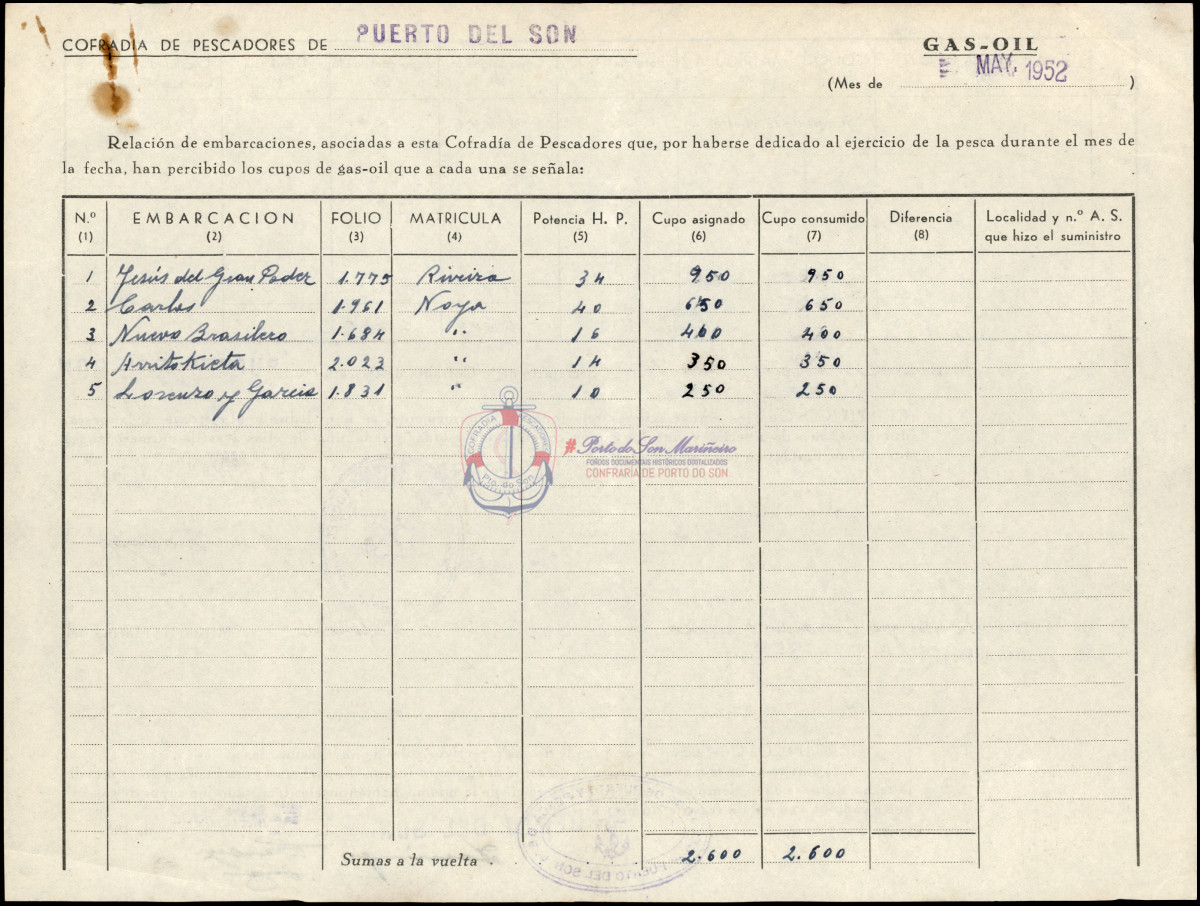 COFRADIA DE PESCADORES DE PUERTO DEL SON
GAS-OIL
(Mes de MAY. 1952)
Relación de embarcaciones, asociadas a esta Cofradía de Pescadores que, por haberse dedicado al ejercicio de la pesca durante el mes de
la fecha, han percibido los cupos de gas-oil que a cada una se señala:
N.º EMBARCACION FOLIO MATRICULA Potencia H. P. Cupo asignado Cupo consumido Diferencia Localidad y n.º A. S.
(1) (2) (3) (4) (5) (6) (7) (8) que hizo el suministro
1 Jesús del Gran Poder 1.775 Riveira 34 950 950
2 Carlos 1.961 Noya 40 650 650
3 Nuevo Brasilero 1.684 " 16 400 400
4 Arritokieta 2.023 " 14 350 350
5 Lorenzo y Garcia 1.831 " 10 250 250
COFRADIA PESCADORES
Pto. do Son
#Porto do Son Mariñeiro
FONDOS DOCUMENTAIS HISTÓRICOS DIGITALIZADOS
CONFRARÍA DE PORTO DO SON
Sumas a la vuelta 2.600 2.600
PUERTO DEL SON